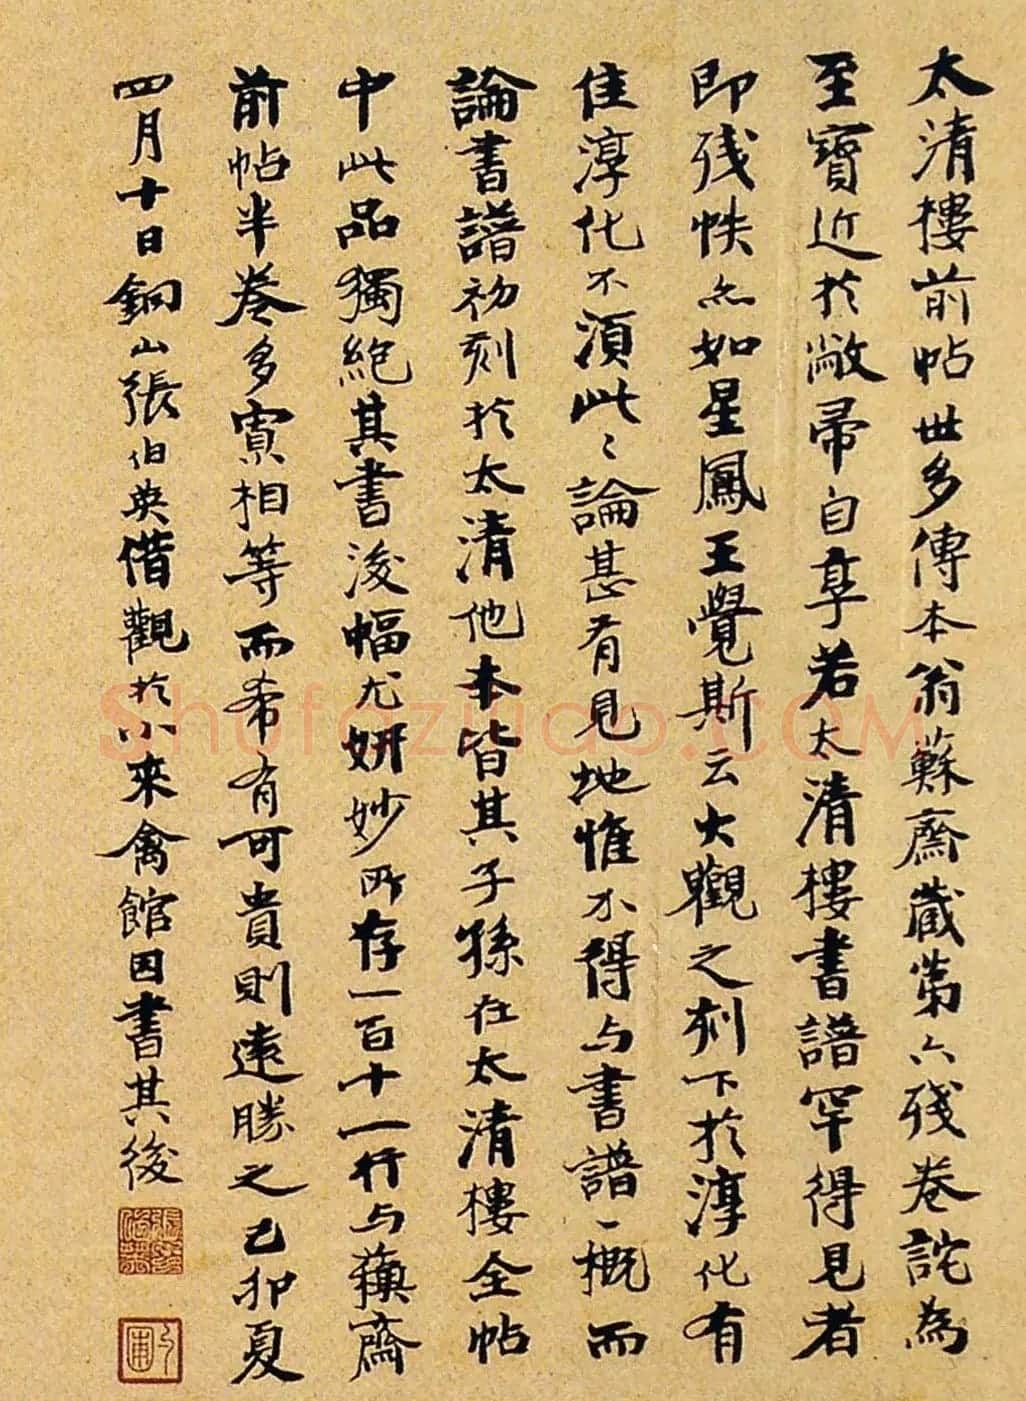 太清樓前帖世多傳本翁蘇齋藏第六残卷詫為
至寶近於敝帚自享若太清樓書譜罕得見者
即残帙亦如星鳳王覺斯云大觀之刻下於淳化有
佳淳化不須此〻論甚有見地惟不得与書譜一概而
論書譜初刻於太清他本皆其子孫在太清樓全帖
中此品獨絶其書後幅尤妍妙所存一百十一行与蘓齋
前帖半卷多寡相等而希有可貴則遠勝之己卯夏
四月十日銅山張伯英借觀於小來禽館因書其後
勺圃
Shufaziliao.COM